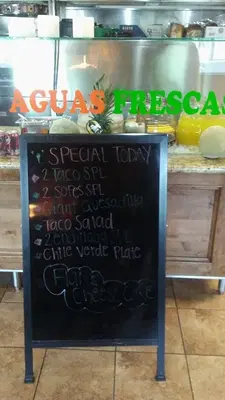 AGUAS FRESCAS
SPECIAL TODAY
2 TACO SPL
2 SOPES SPL
Giant Quesadilla
Taco Salad
2 enchiladas
CHILE VERDE PLATE